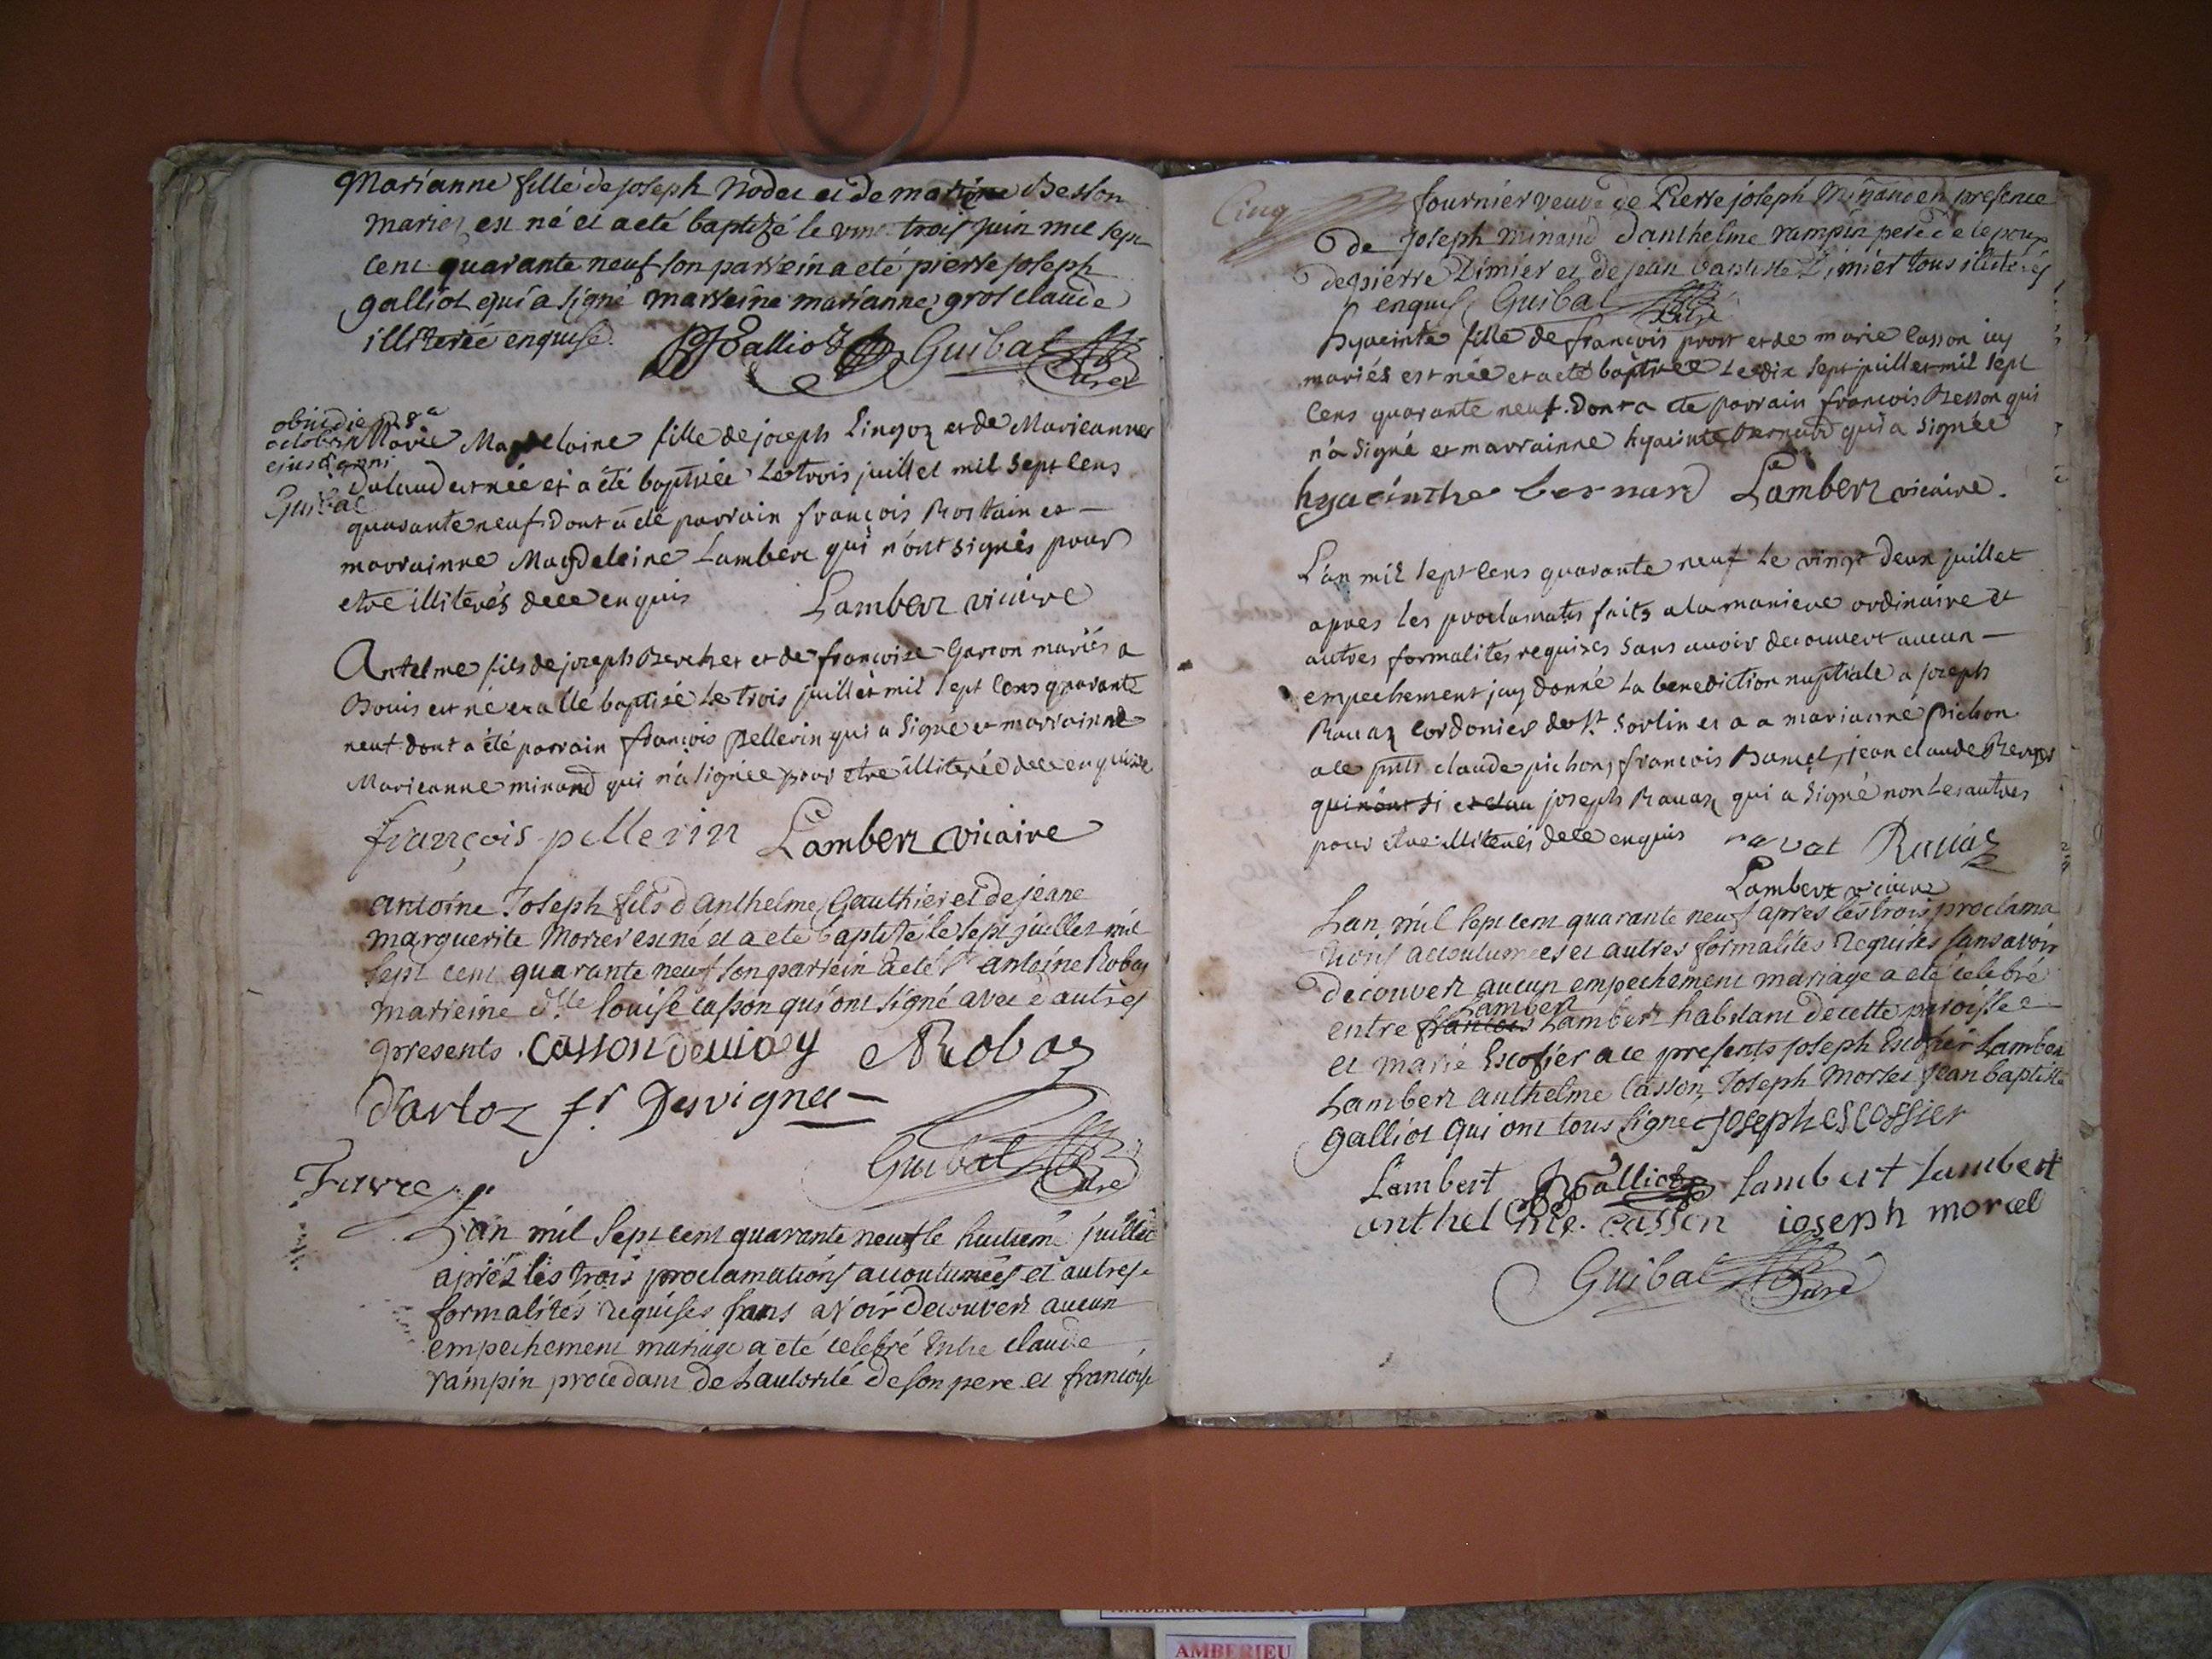 Marianne fille de joseph Nodet et de marine Besson
mariez est né et a eté baptizé le vint trois juin mil sept
cent quarante neuf son parrein a eté pierre joseph
galliot qui a signé marreine marianne grosclaude
illiterée enquise. JGalliot Guibal Curé
obiit die 28a
octobris
ejusd. anni
Guibal
Marie Magdeleine fille de joseph Lingoz et de Marieanne
Dulaud est née et a été baptisée Le trois juillet mil sept cens
quarante neuf dont a été parrain françois Rostain et
marrainne Magdeleine Lambert qui n'ont signés pour
etre illiterés de ce enquis Lambert vicaire
Antelme fils de joseph Berchet et de françoise Garcon mariés a
Bouis est né et a été baptisé Le trois juillet mil sept cens quarante
neuf dont a été parrain françois Pellerin qui a signé et marrainne
Marieanne minand qui n'a signée pour etre illiterée de ce enquise
françois pellerin Lambert vicaire
antoine Joseph fils d'anthelme Gauthier et de jeane
marguerite Morret est né et a eté baptizé le sept juillet mil
sept cent quarante neuf son parrein a eté Sr antoine Robay
marreine dlle louise casson qui ont signé avec d'autres
presents. casson deuiay Robaz
Darloz fr. Desvignes
Guibal Curé
Favre
L'an mil sept cent quarante neuf le huitieme juillet
après les trois proclamations accoutumées et autres
formalités requises sans avoir decouvert aucun
empechement mariage a été celebré entre claude
rampin procedant de L'autorité de son pere et francoise
Cinq
fournier veuve de Pierre joseph Minand en presence
de Joseph minand d'anthelme rampin pere de lepoux
de pierre Dimier et de jean baptiste Dimier tous illiterés
enquis Guibal Curé
hyacinte fille de françois prost et de marie Casson icy
mariés est née et a eté baptisée Le dix sept juillet mil sept
Cens quarante neuf. dont a été parrain francois Besson qui
n'a signé et marrainne hyacinte Bernard qui a signée
hyacinthe bernard Lambert vicaire.
L'an mil sept cens quarante neuf Le vingt deux juillet
apres les proclamatns faits a la maniere ordinaire et
autres formalités requises sans avoir decouvert aucun
empechement jay donné La benediction nuptiale a joseph
Rauaz cordonier de St Sorlin et a a marianne pichon
a ce pnts claude pichon, francois Bamet, jean claude Berger
qui n'ont si et clau joseph Rauaz qui a signé non Les autres
pour etre illiterés de ce enquis ravat Rauaz
Lambert vicaire
Lan mil sept cent quarante neuf apres les trois proclama
tions accoutumées et autres formalites requises sans avoir
decouvert aucun empechement mariage a eté celebré
Lambert
entre francois Lambert habitant de cette paroisse
et marie Escofier a ce presents joseph Escofier Lambert
Lambert anthelme Casson, Joseph Morset jean baptiste
galliot qui ont tous signé joseph escossier
Lambert JBGalliot lambert lambert
anthelme casson ioseph morcel
Guibal Curé
AMBERIEU